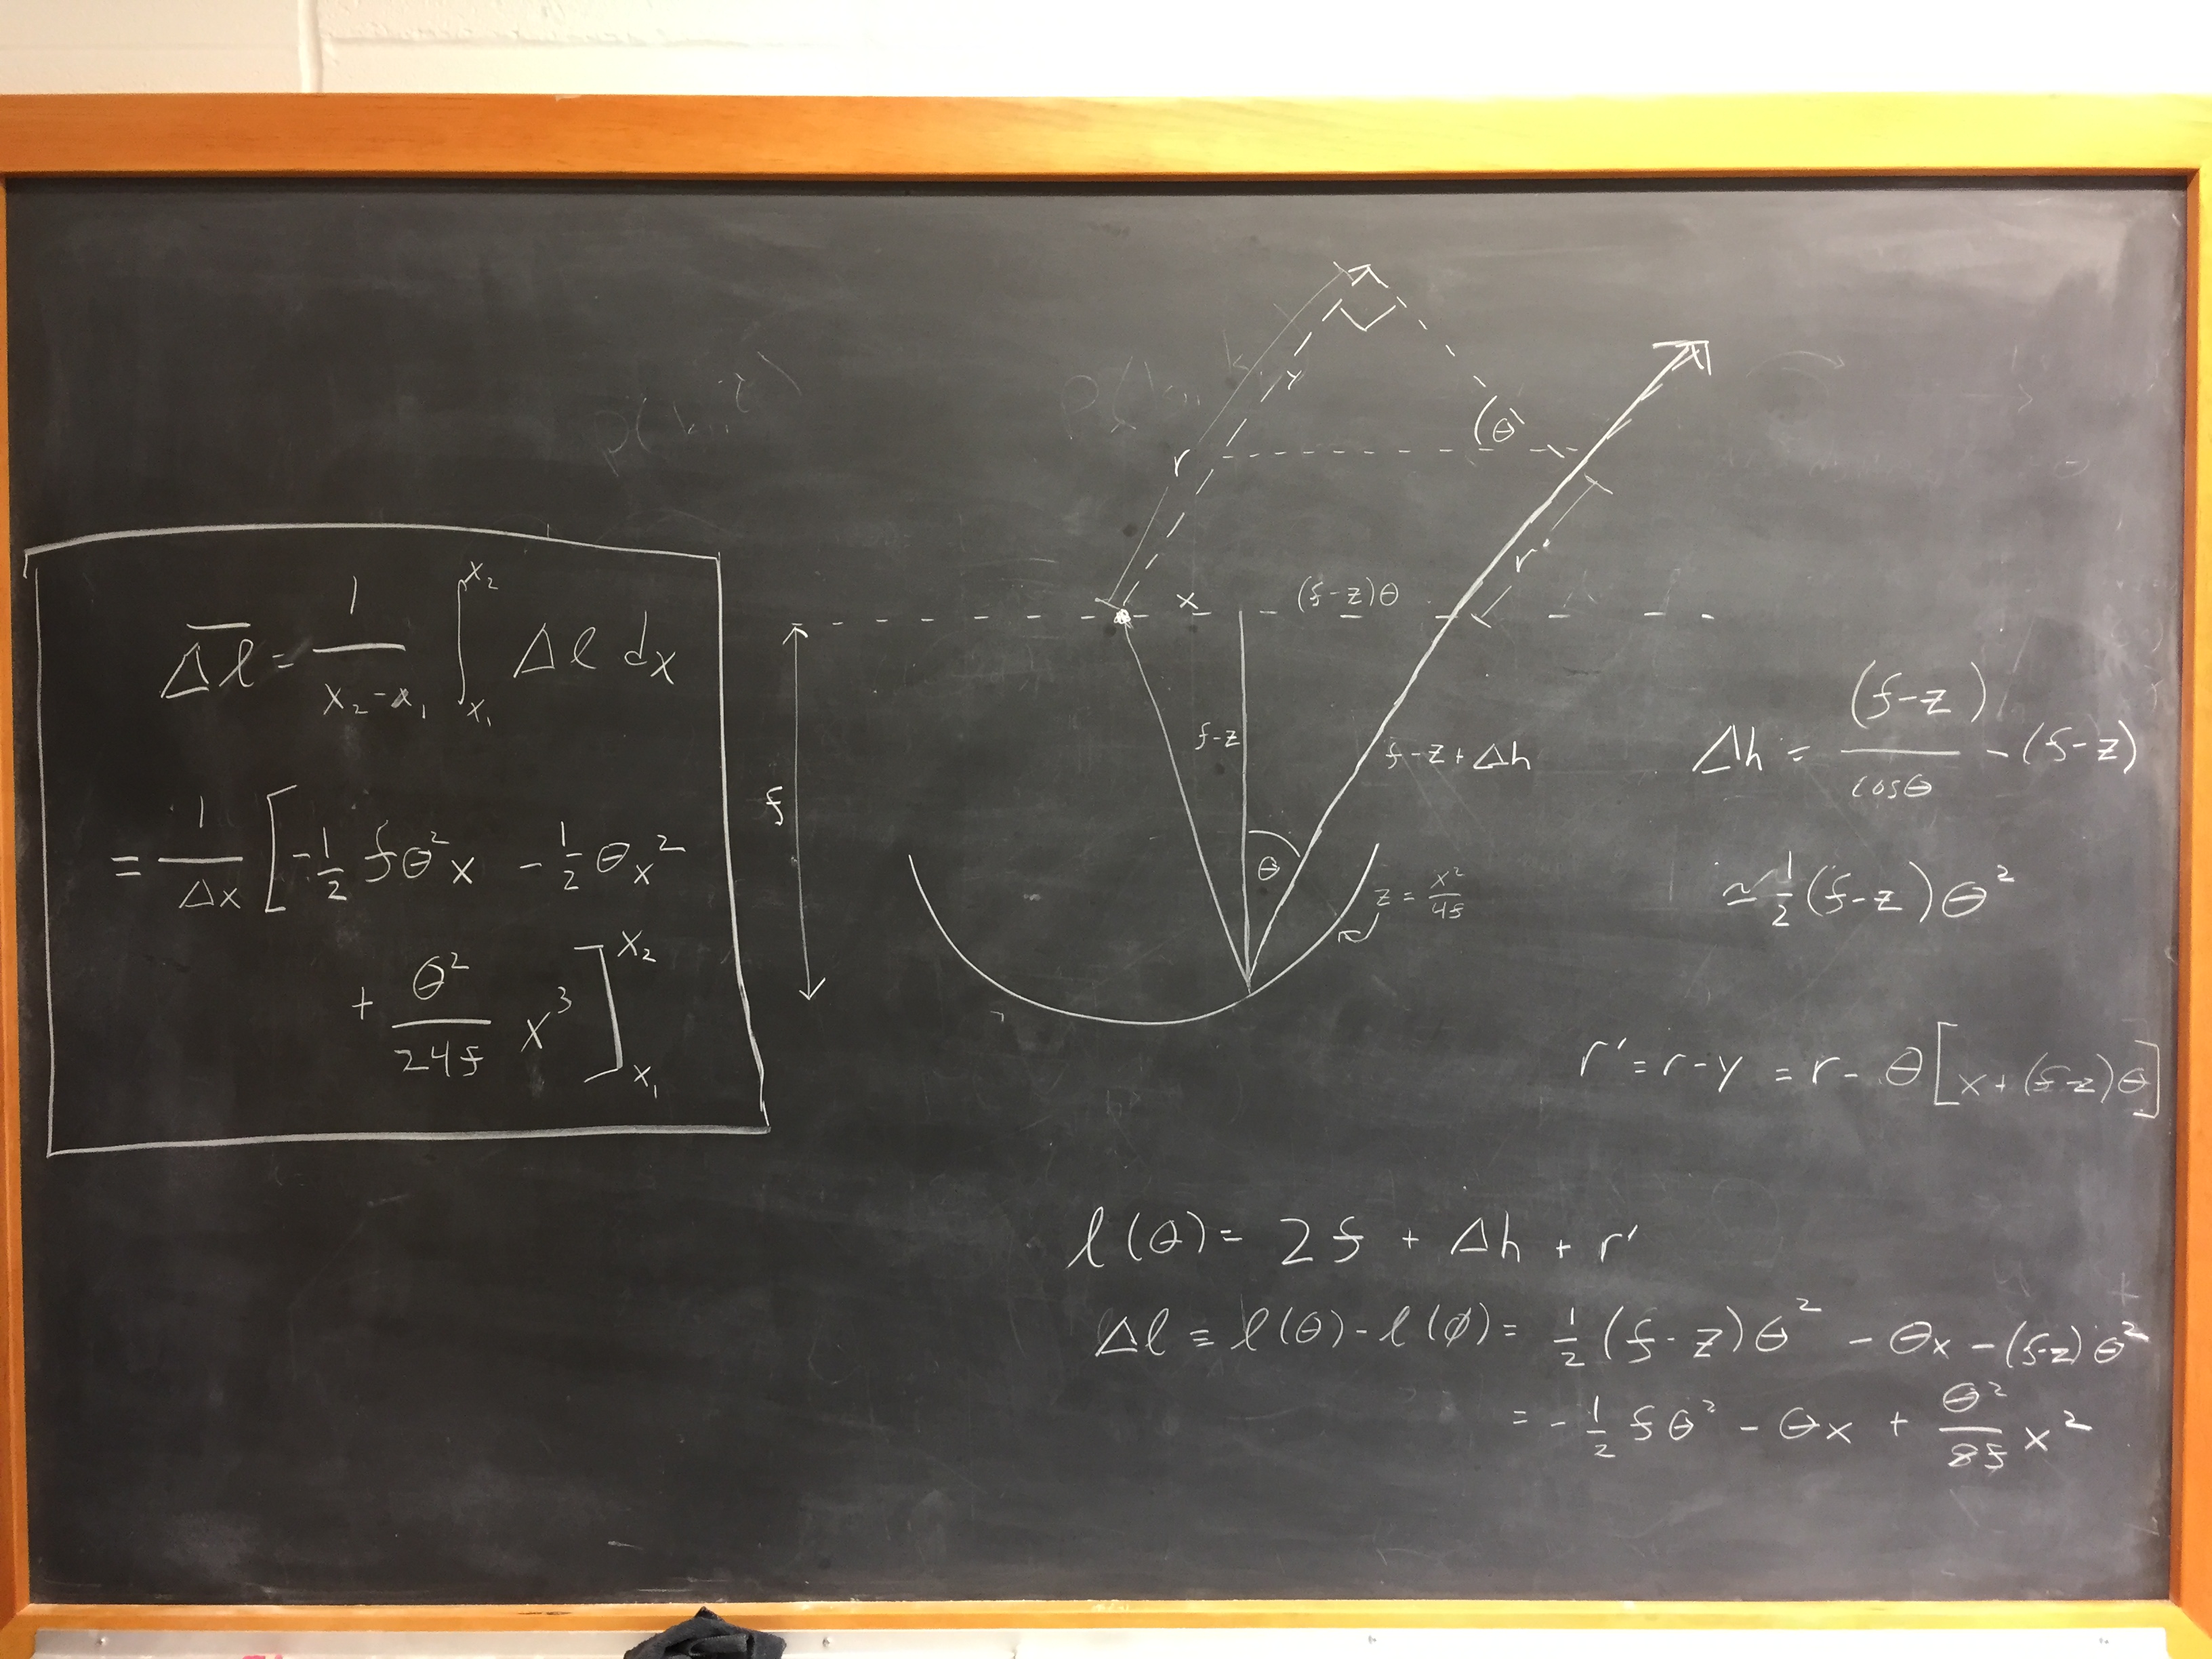 Δl̅ = 1/(x₂ - x₁) ∫_{x₁}^{x₂} Δl dx
= 1/Δx [ -1/2 fθ²x - 1/2 θx²
+ θ²/(24f) x³ ]_{x₁}^{x₂}
y
(θ
r
r'
x
(f-z)θ
f
f-z
f-z+Δh
θ
z = x²/(4f)
Δh = (f-z)/cosθ - (f-z)
≃ 1/2 (f-z)θ²
r' = r-y = r - θ[x+(f-z)θ]
l(θ) = 2f + Δh + r'
Δl ≡ l(θ) - l(∅) = 1/2 (f-z)θ² - θx - (f-z)θ²
= -1/2 fθ² - θx + θ²/(8f) x²